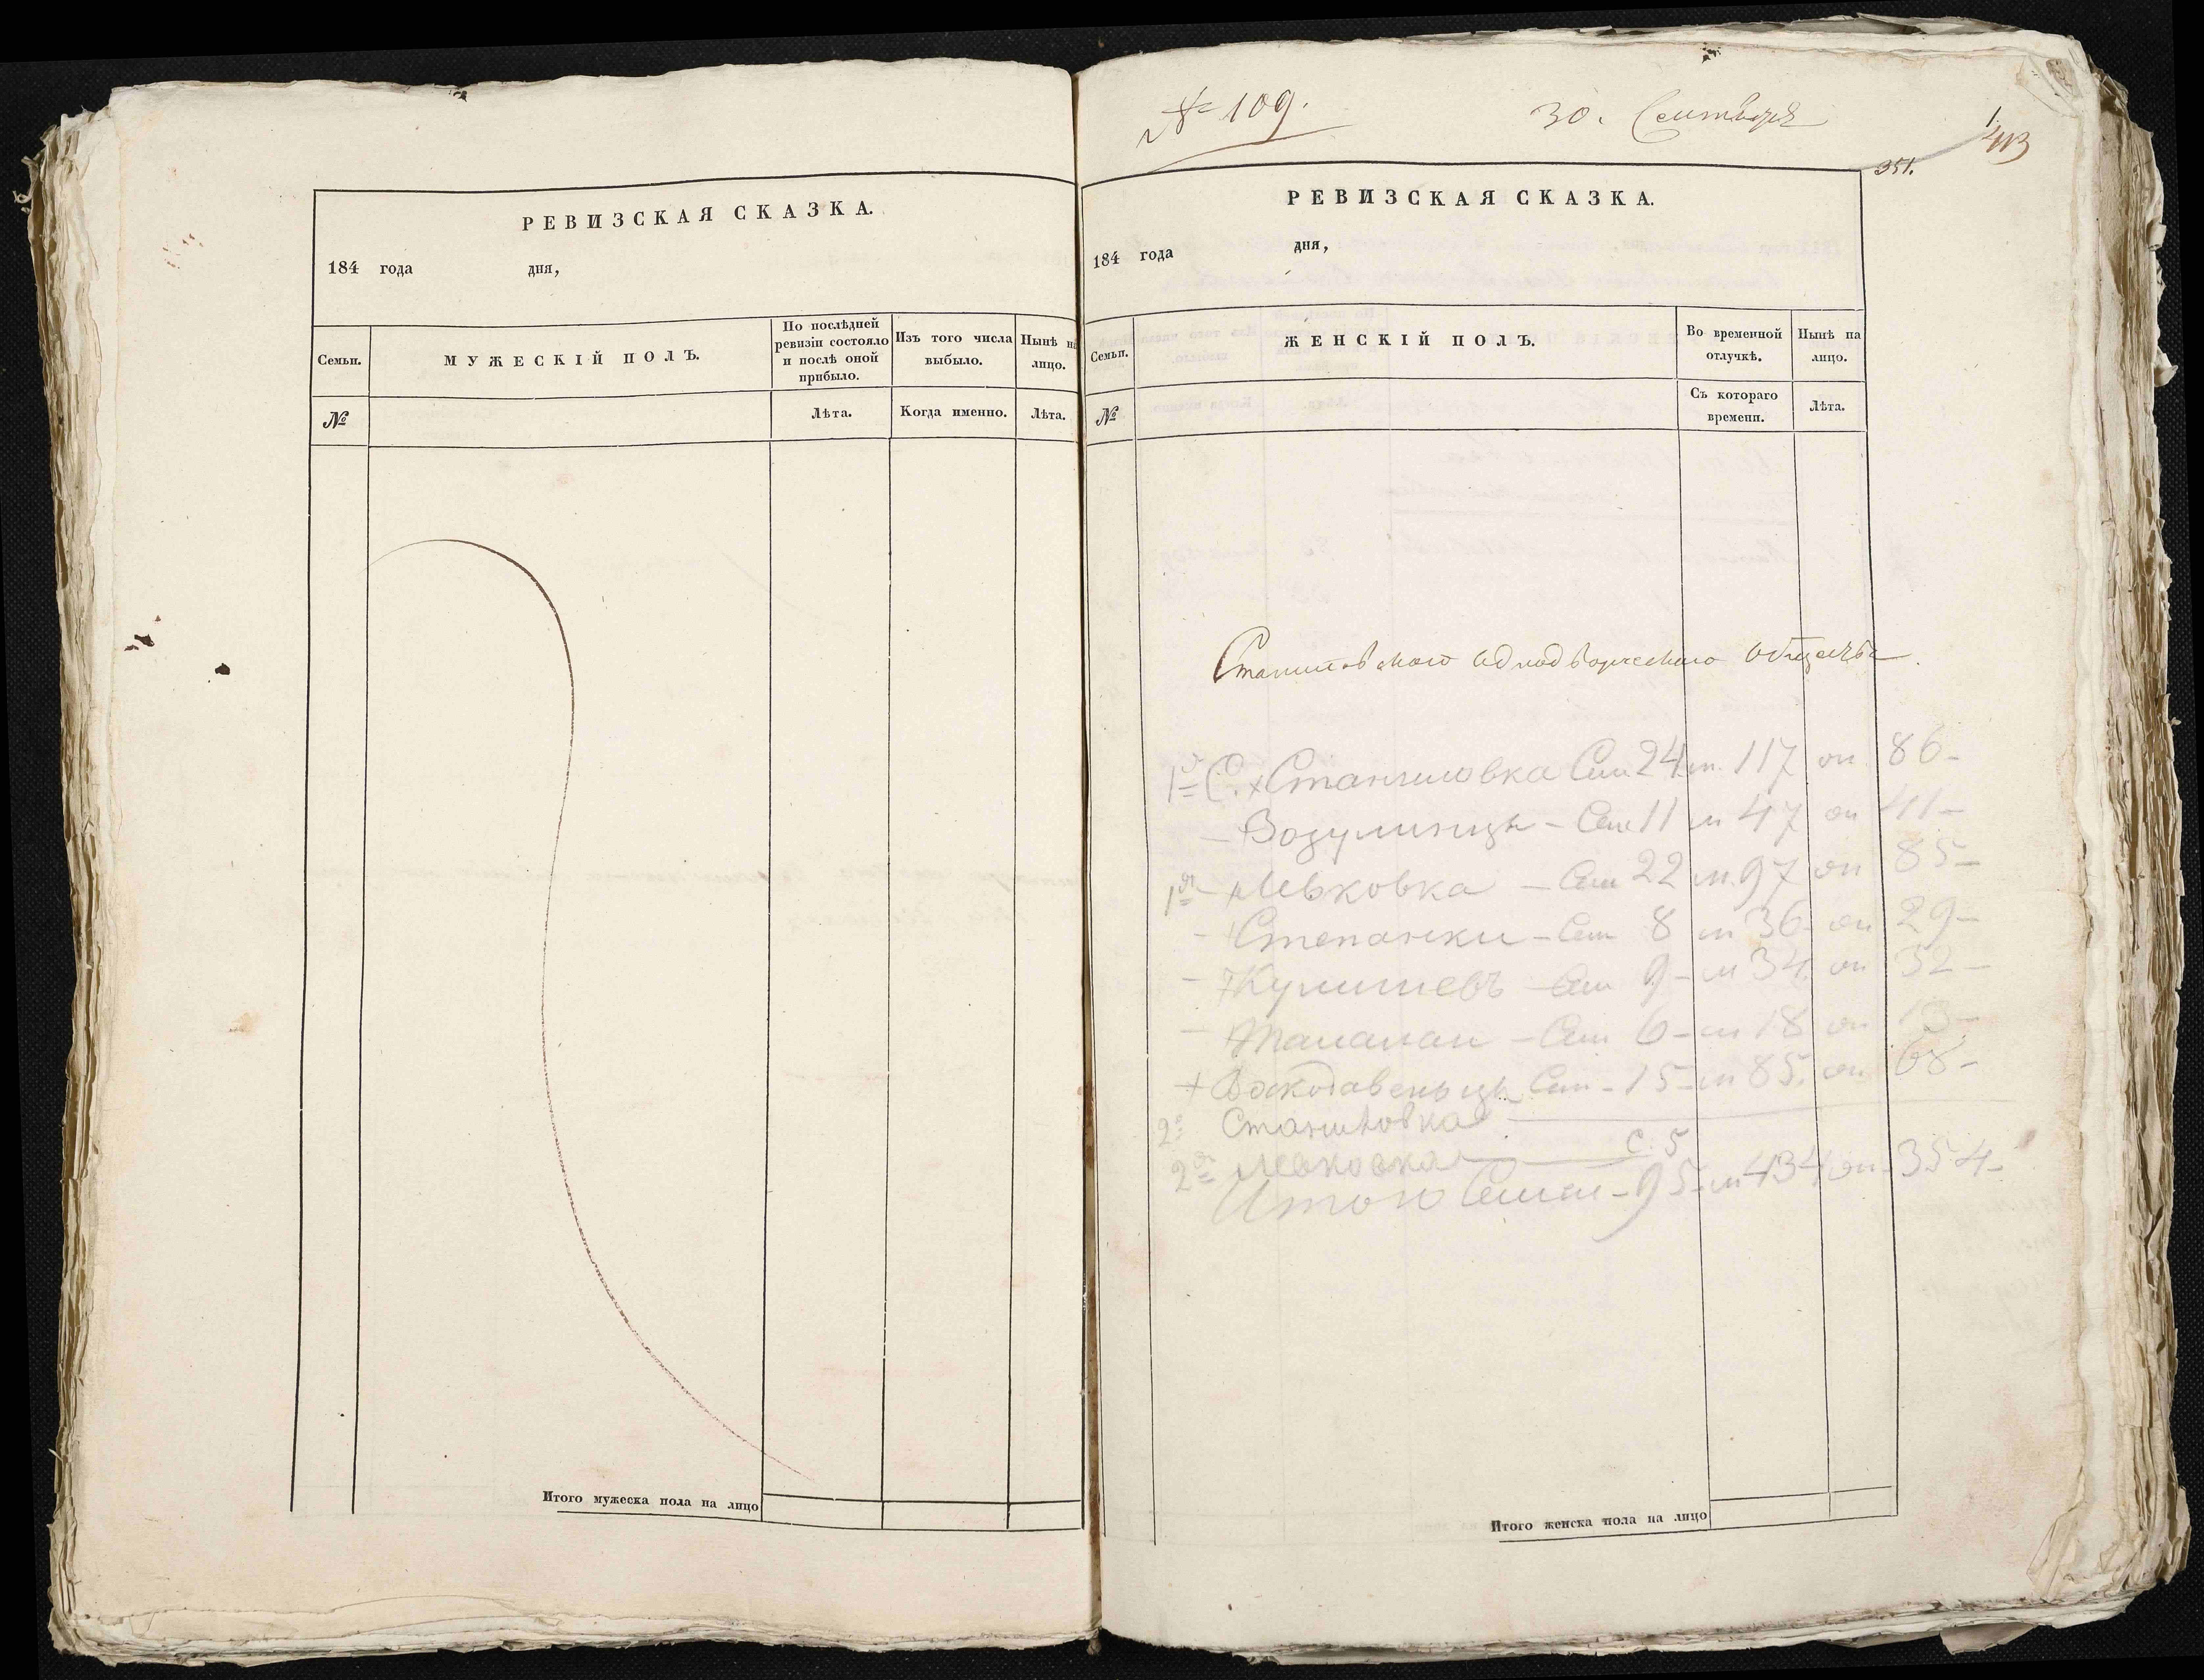 РЕВИЗСКАЯ СКАЗКА.
184 года дня,
Семьи.
МУЖЕСКІЙ ПОЛЪ.
По послѣдней ревизіи состояло и послѣ оной прибыло.
Изъ того числа выбыло.
Нынѣ на лицо.
№
Лѣта.
Когда именно.
Лѣта.
Итого мужеска пола на лицо
№ 109.
30. Сентября
413
351.
РЕВИЗСКАЯ СКАЗКА.
184 года дня,
Семьи.
ЖЕНСКІЙ ПОЛЪ.
Во временной отлучкѣ.
Нынѣ на лицо.
№
Съ котораго времени.
Лѣта.
Станишовскаго однодворческаго общества.
1я С. Станишовка Сем 24 м. 117 ж 86-
- Возулинцы - Сем 11 м 47 ж 41-
1я Левковка - Сем 22 м. 97 ж 85-
- Степанки - Сем 8 м 36 ж 29-
- - Сем 9- м 34 ж 32-
- - Сем 6- м 18 ж 13-
+ Сем - 15- м 85. ж 68-
2я Станишовка
2я Левковка С. 5
Итого Семей - 95- м 434 ж 354-
Итого женска пола на лицо